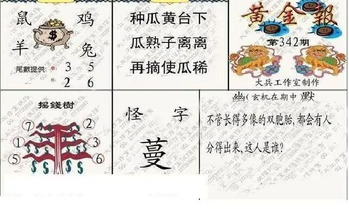 鼠 鸡
羊 兔
$
尾數提供: 3 5
2 6
种瓜黄台下
瓜熟子离离
再摘使瓜稀
黄金報
第342期
大兵工作室制作
摇錢樹
⑦ ①
⑤ ②
⑥ ④
怪 字
蔓
(玄机在期中
不管长得多像的双胞胎,都会有人
分得出来,这人是谁?